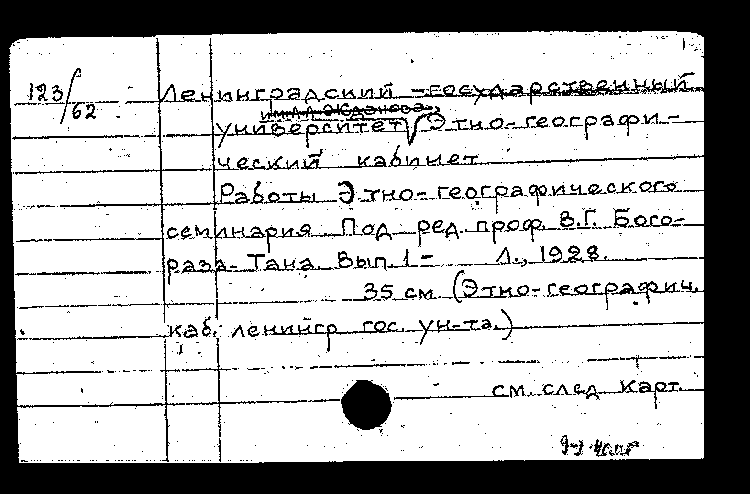 123/62
Ленинградский государственный
им. А.А. Жданова
университет Этно-географи-
ческий кабинет
Работы Этно-географического
семинария. Под ред. проф. В.Г. Бого-
раза-Тана. Вып. 1- Л., 1928.
35 см (Этно-географич.
каб. ленингр гос. ун-та.)
см. след карт.